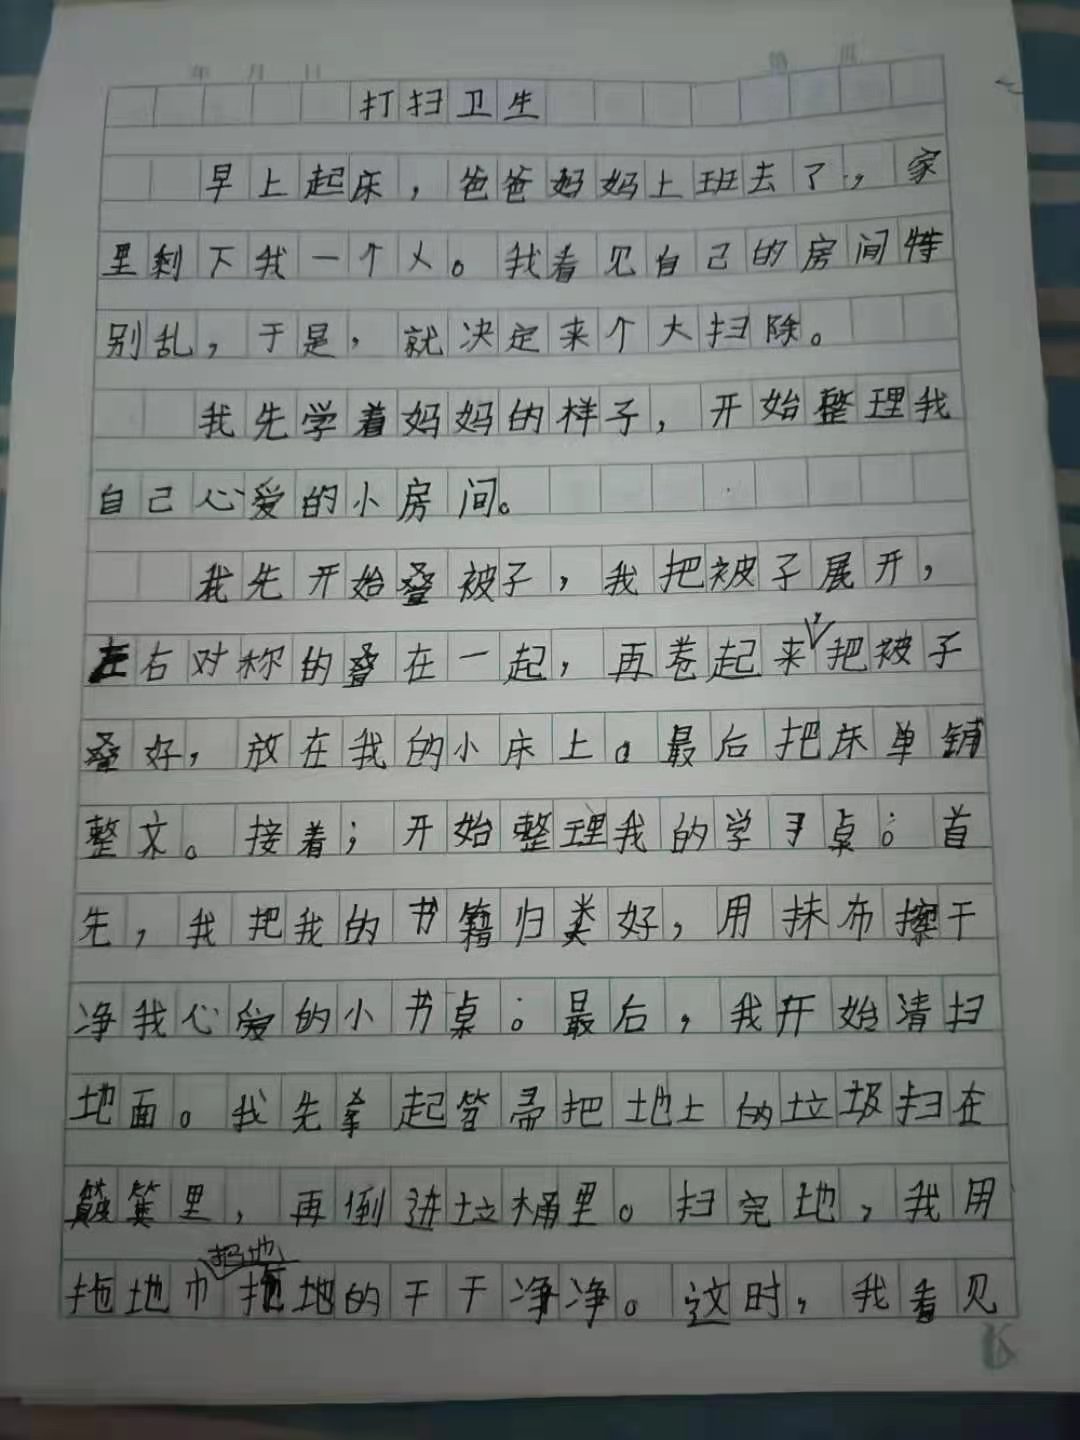 年 月 日 第 页
打扫卫生
早上起床，爸爸妈妈上班去了，家
里剩下我一个人。我看见自己的房间特
别乱，于是，就决定来个大扫除。
我先学着妈妈的样子，开始整理我
自己心爱的小房间。
我先开始叠被子，我把被子展开，
左右对称的叠在一起，再卷起来，把被子
叠好，放在我的小床上。最后把床单铺
整文。接着；开始整理我的学习桌。首
先，我把我的书籍归类好，用抹布擦干
净我心爱的小书桌。最后，我开始清扫
地面。我先拿起笤帚把地上的垃圾扫在
簸箕里，再倒进垃桶里。扫完地，我用
拖地巾把地拖地的干干净净。这时，我看见